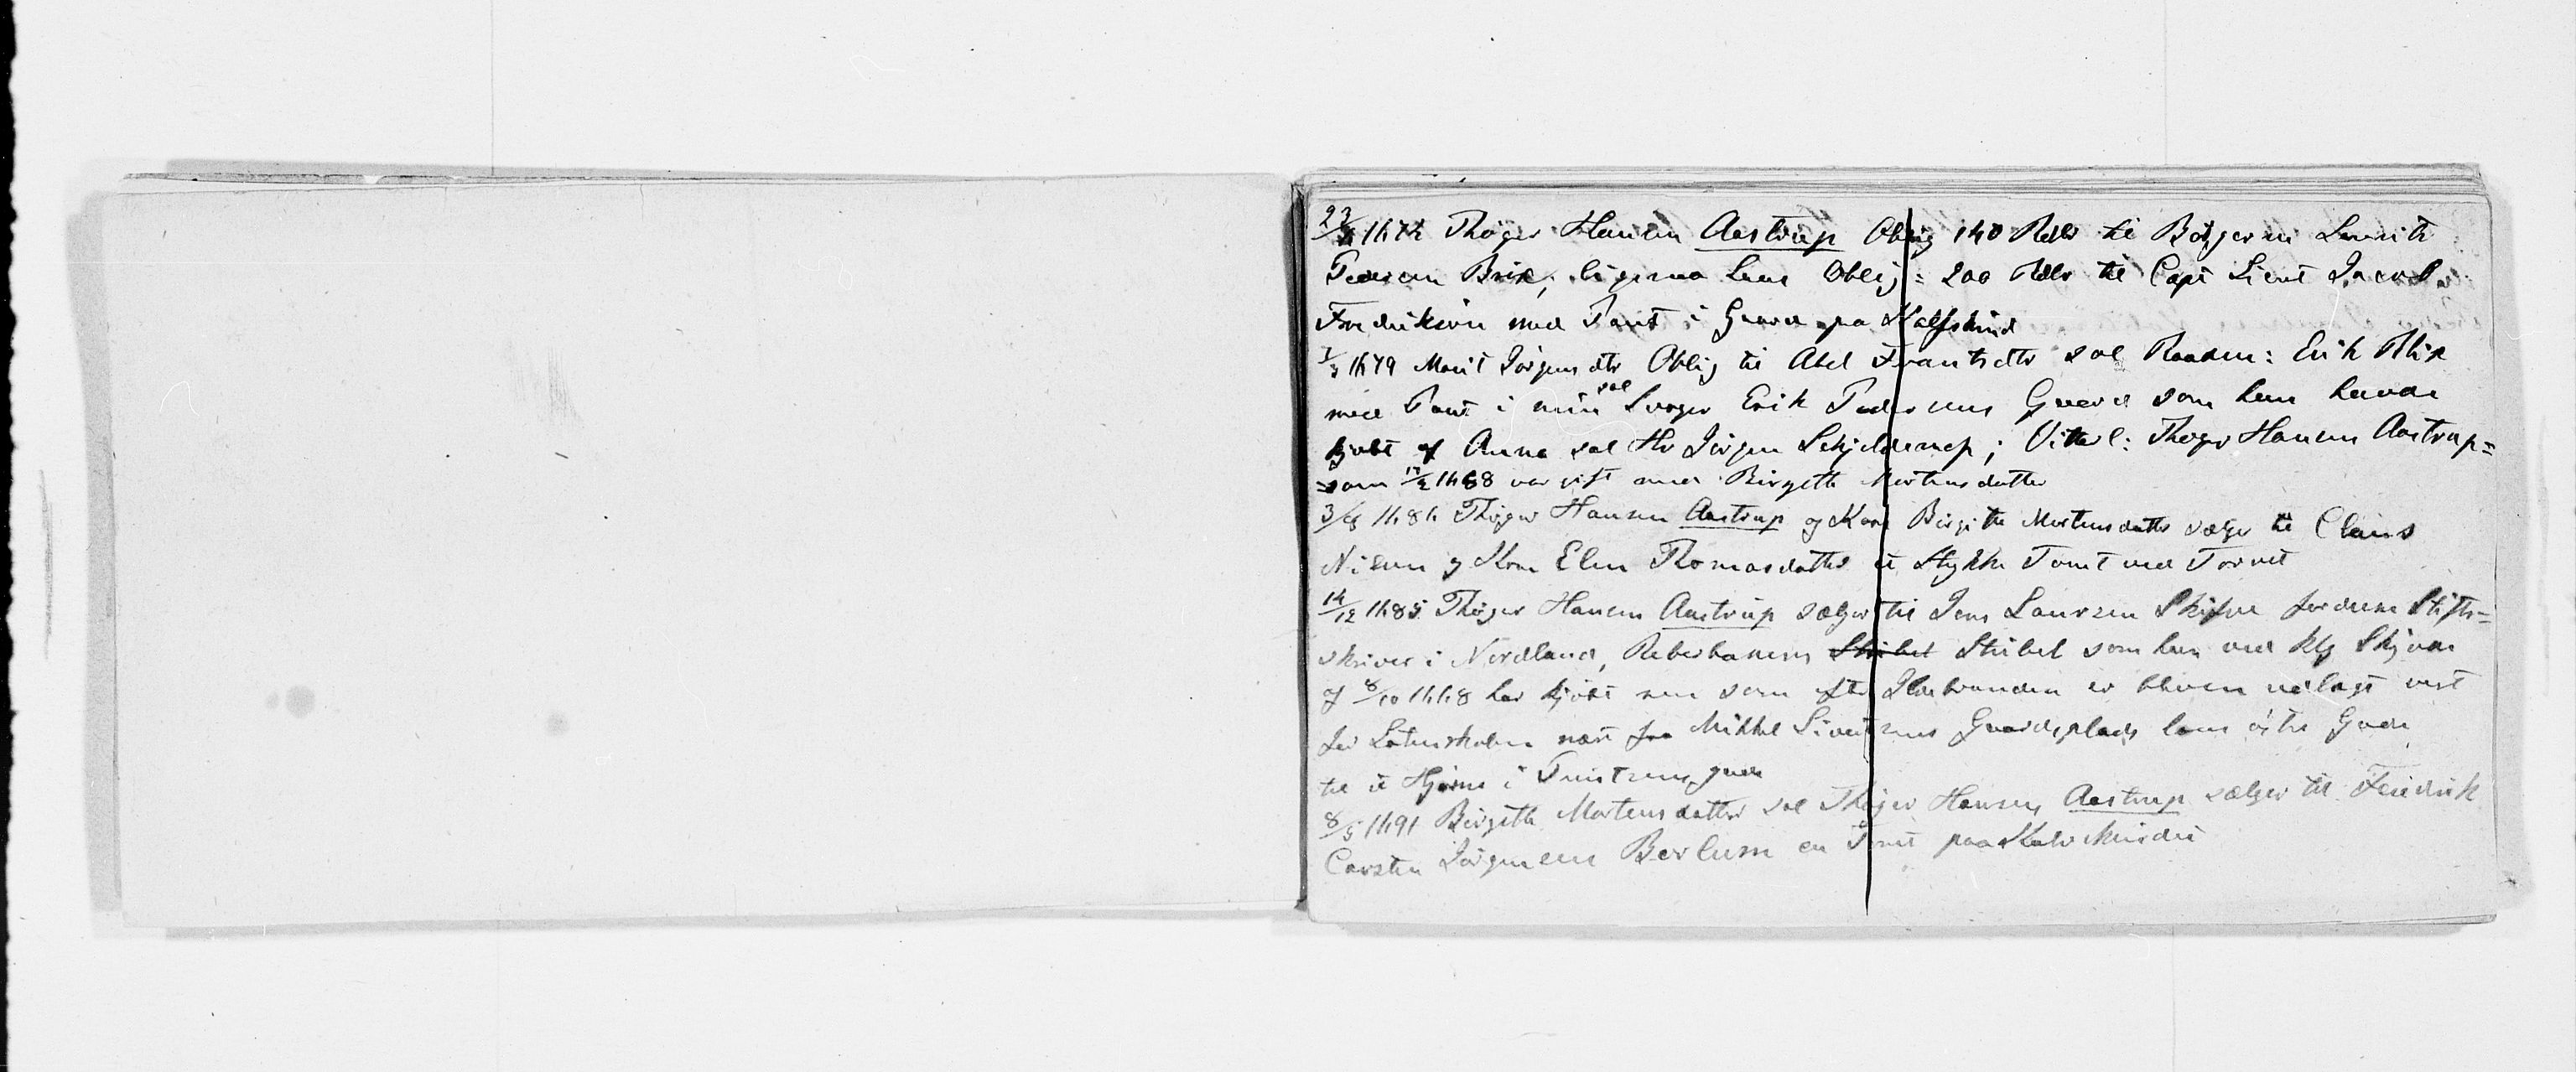 23/4 1672 Thøger Hansen Aastrup Oblig 140 Rdlr til Borgeren Laurits
Pedersen Brix, ligesaa hans Oblig: 200 Rdlr til Capt Lieut Jacob
Fredriksøn med Pant i Gaard paa Kalfskind
1/3 1679 Marit Jørgensdtr Oblig til Abel Frantsdtr sal Raadm: Erik Blix
med Pant i min sal Svoger Erik Pedersens Gaard som han havde
kjøbt af Anna sal Hr Jørgen Schjelderup; Vitterl: Thøger Hansen Aastrup=
=som 17/2 1668 var gift med Birgitte Mortensdatter
3/8 1686 Thøger Hansen Aastrup og Kone Birgitte Mortensdatter sælger til Claus
Nilsen og Kone Elen Thomasdatter et Stykke Tomt ved Torvet
14/12 1685 Thøger Hansen Aastrup sælger til Jens Laursen Skifve fordum Stifts=
skriver i Nordland, Reberbanens Stribel som han ved Kbg Skjøde
af 8/10 1668 har kjøbt men som efter Ildebranden er bleven udlagt vest
for Latinskolen næst fra Mikkel Sivertsens Gaardsplads langs østre Gade
til et Hjørne i gade
8/5 1691 Birgitte Mortensdatter sal Thøger Hansen Aastrup sælger til Feiedrik
Carsten Jørgensen Berlum en Tomt paa